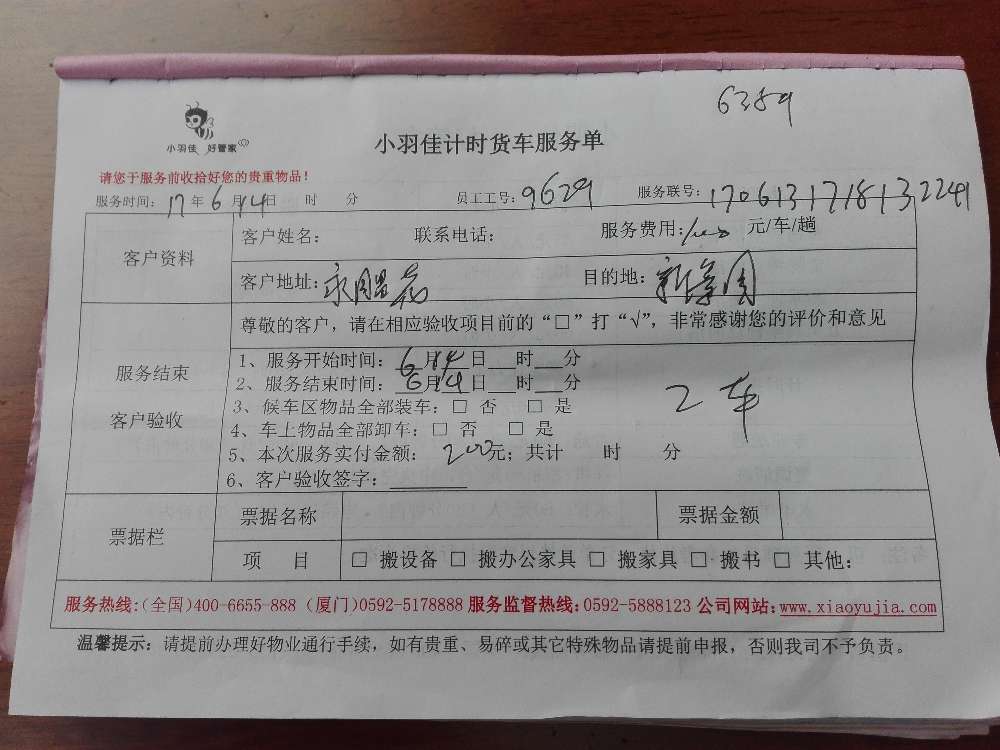 6389
小羽佳 好管家
小羽佳计时货车服务单
请您于服务前收拾好您的贵重物品!
服务时间: 17年6月14日 时 分 员工工号: 9629 服务联号: 1706131718132241
客户资料
客户姓名: 联系电话: 服务费用: 元/车/趟
客户地址: 目的地:
尊敬的客户,请在相应验收项目前的“□”打“√”,非常感谢您的评价和意见
服务结束
客户验收
1、服务开始时间: 6月14日__时__分
2、服务结束时间: 6月14日__时__分
3、候车区物品全部装车: □ 否 □ 是
4、车上物品全部卸车: □ 否 □ 是
5、本次服务实付金额: 200元; 共计 时 分
6、客户验收签字:______
2车
票据栏
票据名称 票据金额
项 目 □ 搬设备 □ 搬办公家具 □ 搬家具 □ 搬书 □ 其他:
服务热线:(全国)400-6655-888 (厦门)0592-5178888 服务监督热线:0592-5888123 公司网站:www.xiaoyujia.com
温馨提示: 请提前办理好物业通行手续,如有贵重、易碎或其它特殊物品请提前申报,否则我司不予负责。